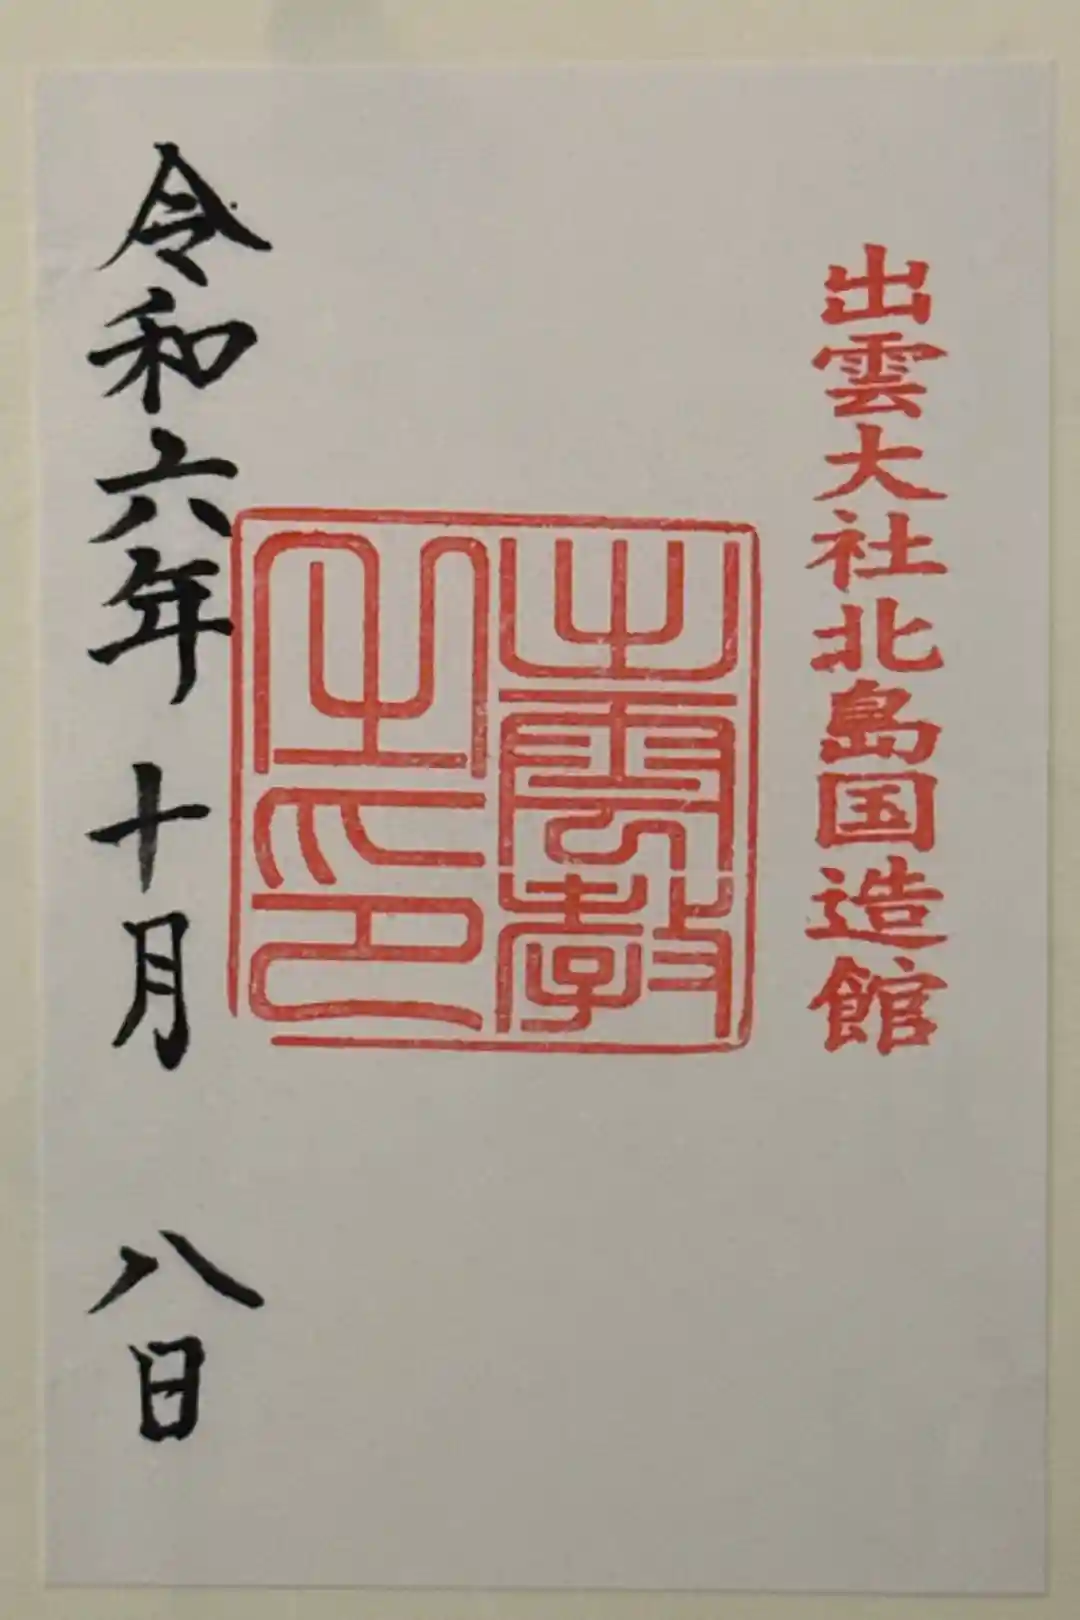 出雲大社北島国造館
出雲教
之印
令和六年十月八日